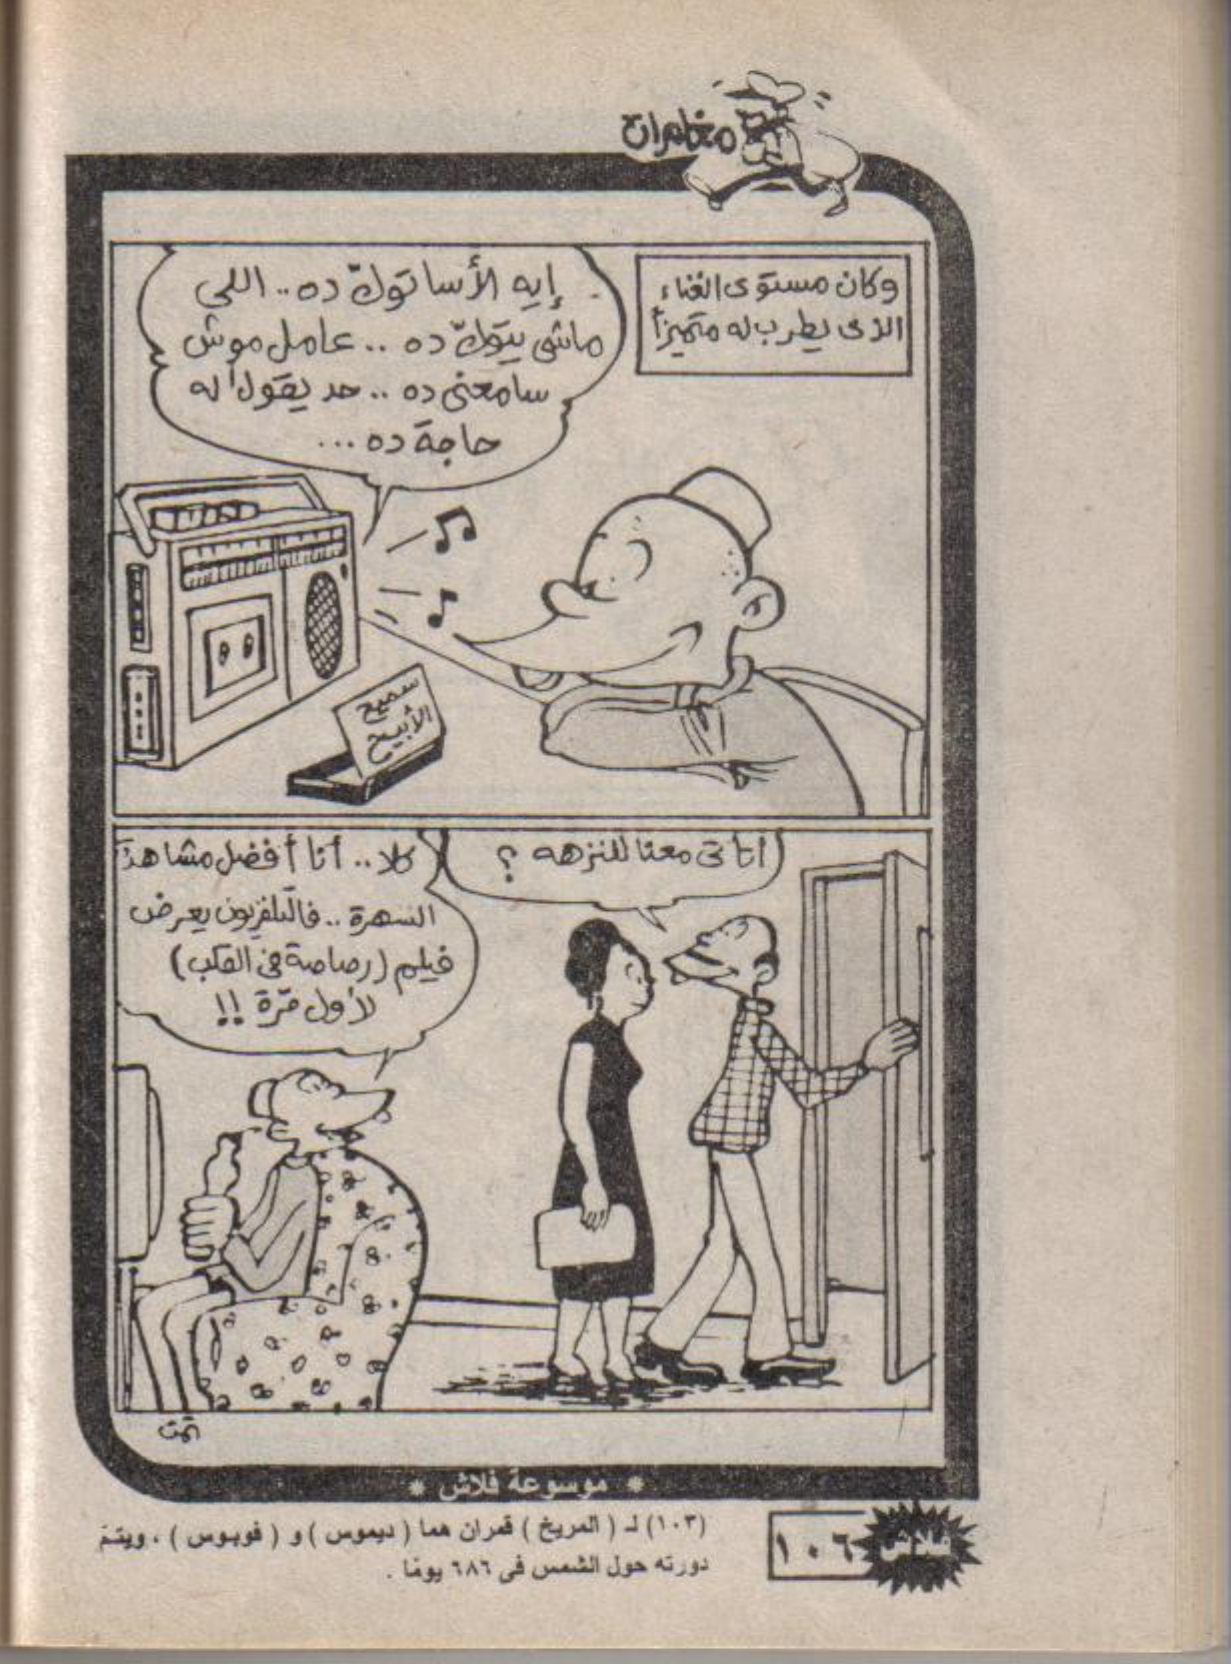 مغامرات
وكان مستوى الغناء
الذى يطرب له متميزاً
إيه الأساتوكّ ده .. اللى
ماشى يتوكّ ده .. عامل موش
سامعنى ده .. حد يقول له
حاجة ده ...
سميح
أتاتى معنا للنزهه ؟
كلا .. أنا أفضل مشاهدة
السهرة .. فالتلفزيون يعرض
فيلم (رصاصة فى القلب)
لأول مرّة !!
تمت
* موسوعة فلاش *
(١٠٣) لـ ( المريخ ) قمران هما ( ديموس ) و ( فوبوس ) ، ويتمّ
دورته حول الشمس فى ٦٨٦ يومًا .
فلاش
١٠٦